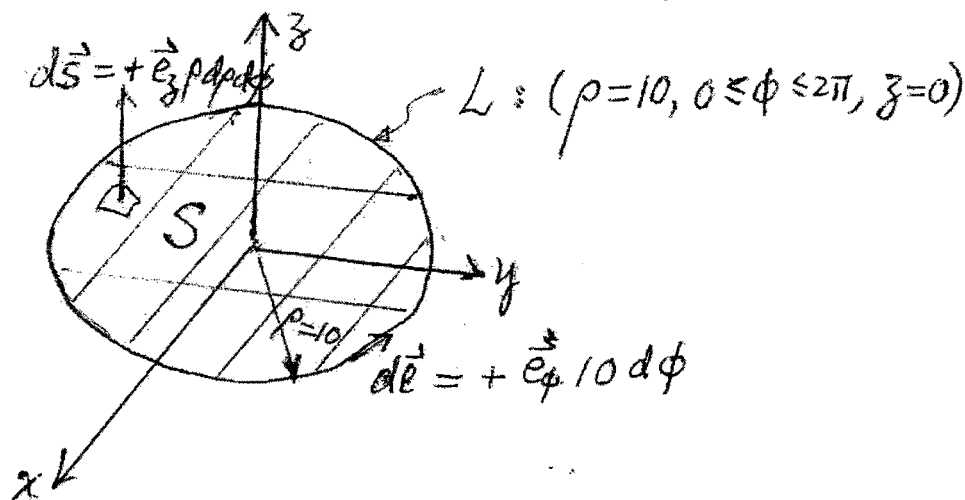 z
ds⃗ = + e⃗_z ρdρdϕ
L : (ρ=10, 0≤ϕ≤2π, z=0)
S
y
ρ=10
dℓ⃗ = + e⃗_ϕ 10 dϕ
x